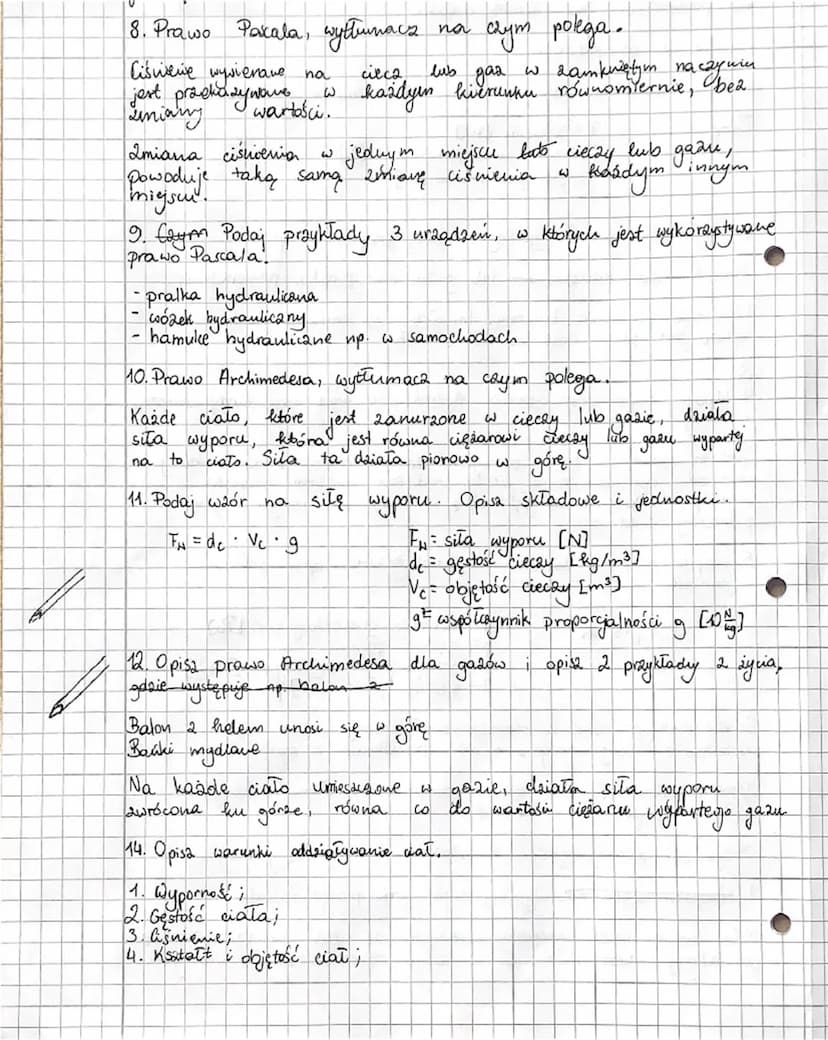 8. Prawo Pascala, wytłumacz na czym polega.
Ciśnienie wywierane na ciecz lub gaz w zamkniętym naczyniu
jest przekazywane w każdym kierunku równomiernie, bez
zmiany wartości.
Zmiana ciśnienia w jednym miejscu lub cieczy lub gazu,
powoduje taką samą zmianę ciśnienia w każdym innym
miejscu.
9. Czym Podaj przykłady 3 urządzeń, w których jest wykorzystywane
prawo Pascala.
- pralka hydrauliczna
- wózek hydrauliczny
- hamulce hydrauliczne np. w samochodach
10. Prawo Archimedesa, wytłumacz na czym polega.
Każde ciało, które jest zanurzone w cieczy lub gazie, działa
siła wyporu, która jest równa ciężarowi cieczy lub gazu wypartej
na to ciało. Siła ta działa pionowo w górę.
11. Podaj wzór na siłę wyporu. Opisz składowe i jednostki.
F_N = d_c · V_c · g
F_N = siła wyporu [N]
d_c = gęstość cieczy [kg/m³]
V_c = objętość cieczy [m³]
g = współczynnik proporcjalności g [10 N/kg]
12. Opisz prawo Archimedesa dla gazów i opisz 2 przykłady z życia,
gdzie występuje np. balon z
Balon z helem unosi się w górę
Bańki mydlane
Na każde ciało umieszczone w gazie, działa siła wyporu
zwrócona ku górze, równa co do wartości ciężaru wypartego gazu
14. Opisz warunki oddziaływanie ciał.
1. Wyporność;
2. Gęstość ciała;
3. Ciśnienie;
4. Kształt i objętość ciał;